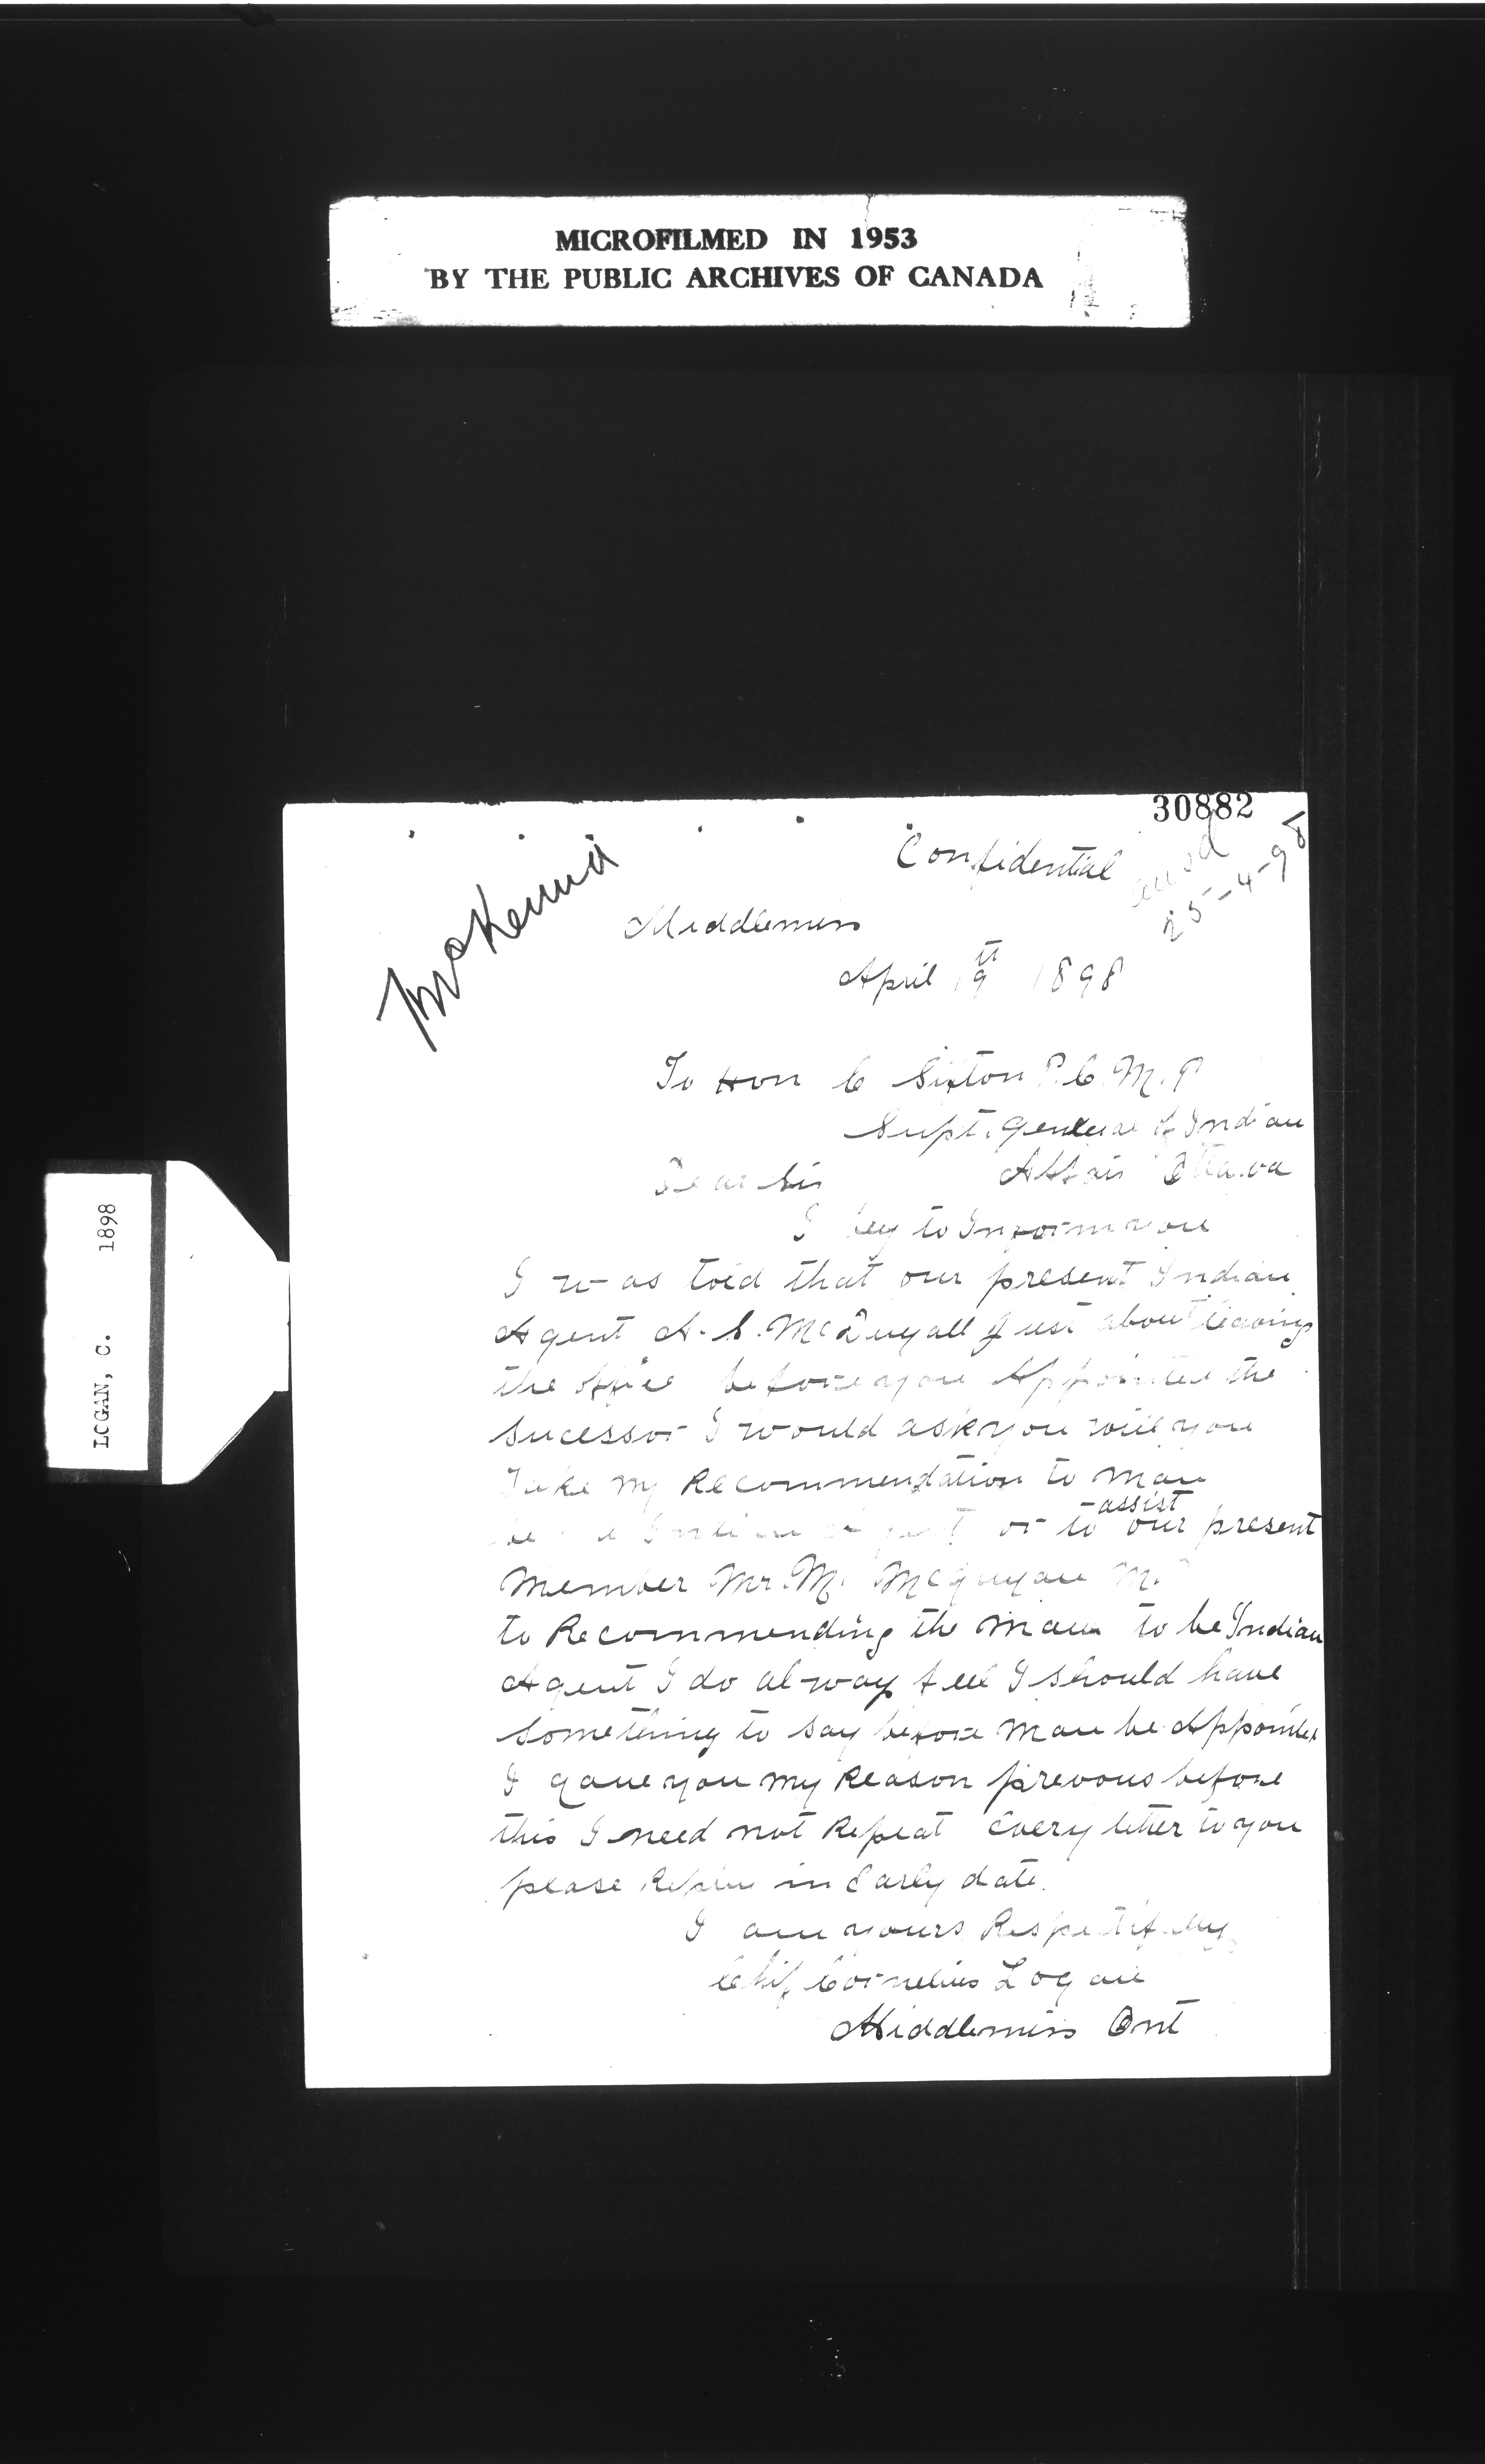 MICROFILMED IN 1953
BY THE PUBLIC ARCHIVES OF CANADA
LOGAN, C. 1898
30882
McKenna
Confidential
ansd
25-4-98
Middlemiss
April 19th 1898
To Hon C Sifton P.C. M.P
Supt. General of Indian
Affair Ottawa
Dear Sir
I beg to Inform you
I was told that our present Indian
Agent A. S. McDugall Just about leaving
the office before you Appointed the
sucessor I would ask you will you
Take my Recommendation to man
be a Indian agent or to assist our present
Member Mr. M. McGugan M.P
to Recommending the man to be Indian
Agent I do alway feel I should have
something to say before man be Appointed
I gave you my Reason prevous before
this I need not Repeat every letter to you
please Reply in Early date.
I am yours Respectfully
Chif Cornelius Logan
Middlemiss Ont